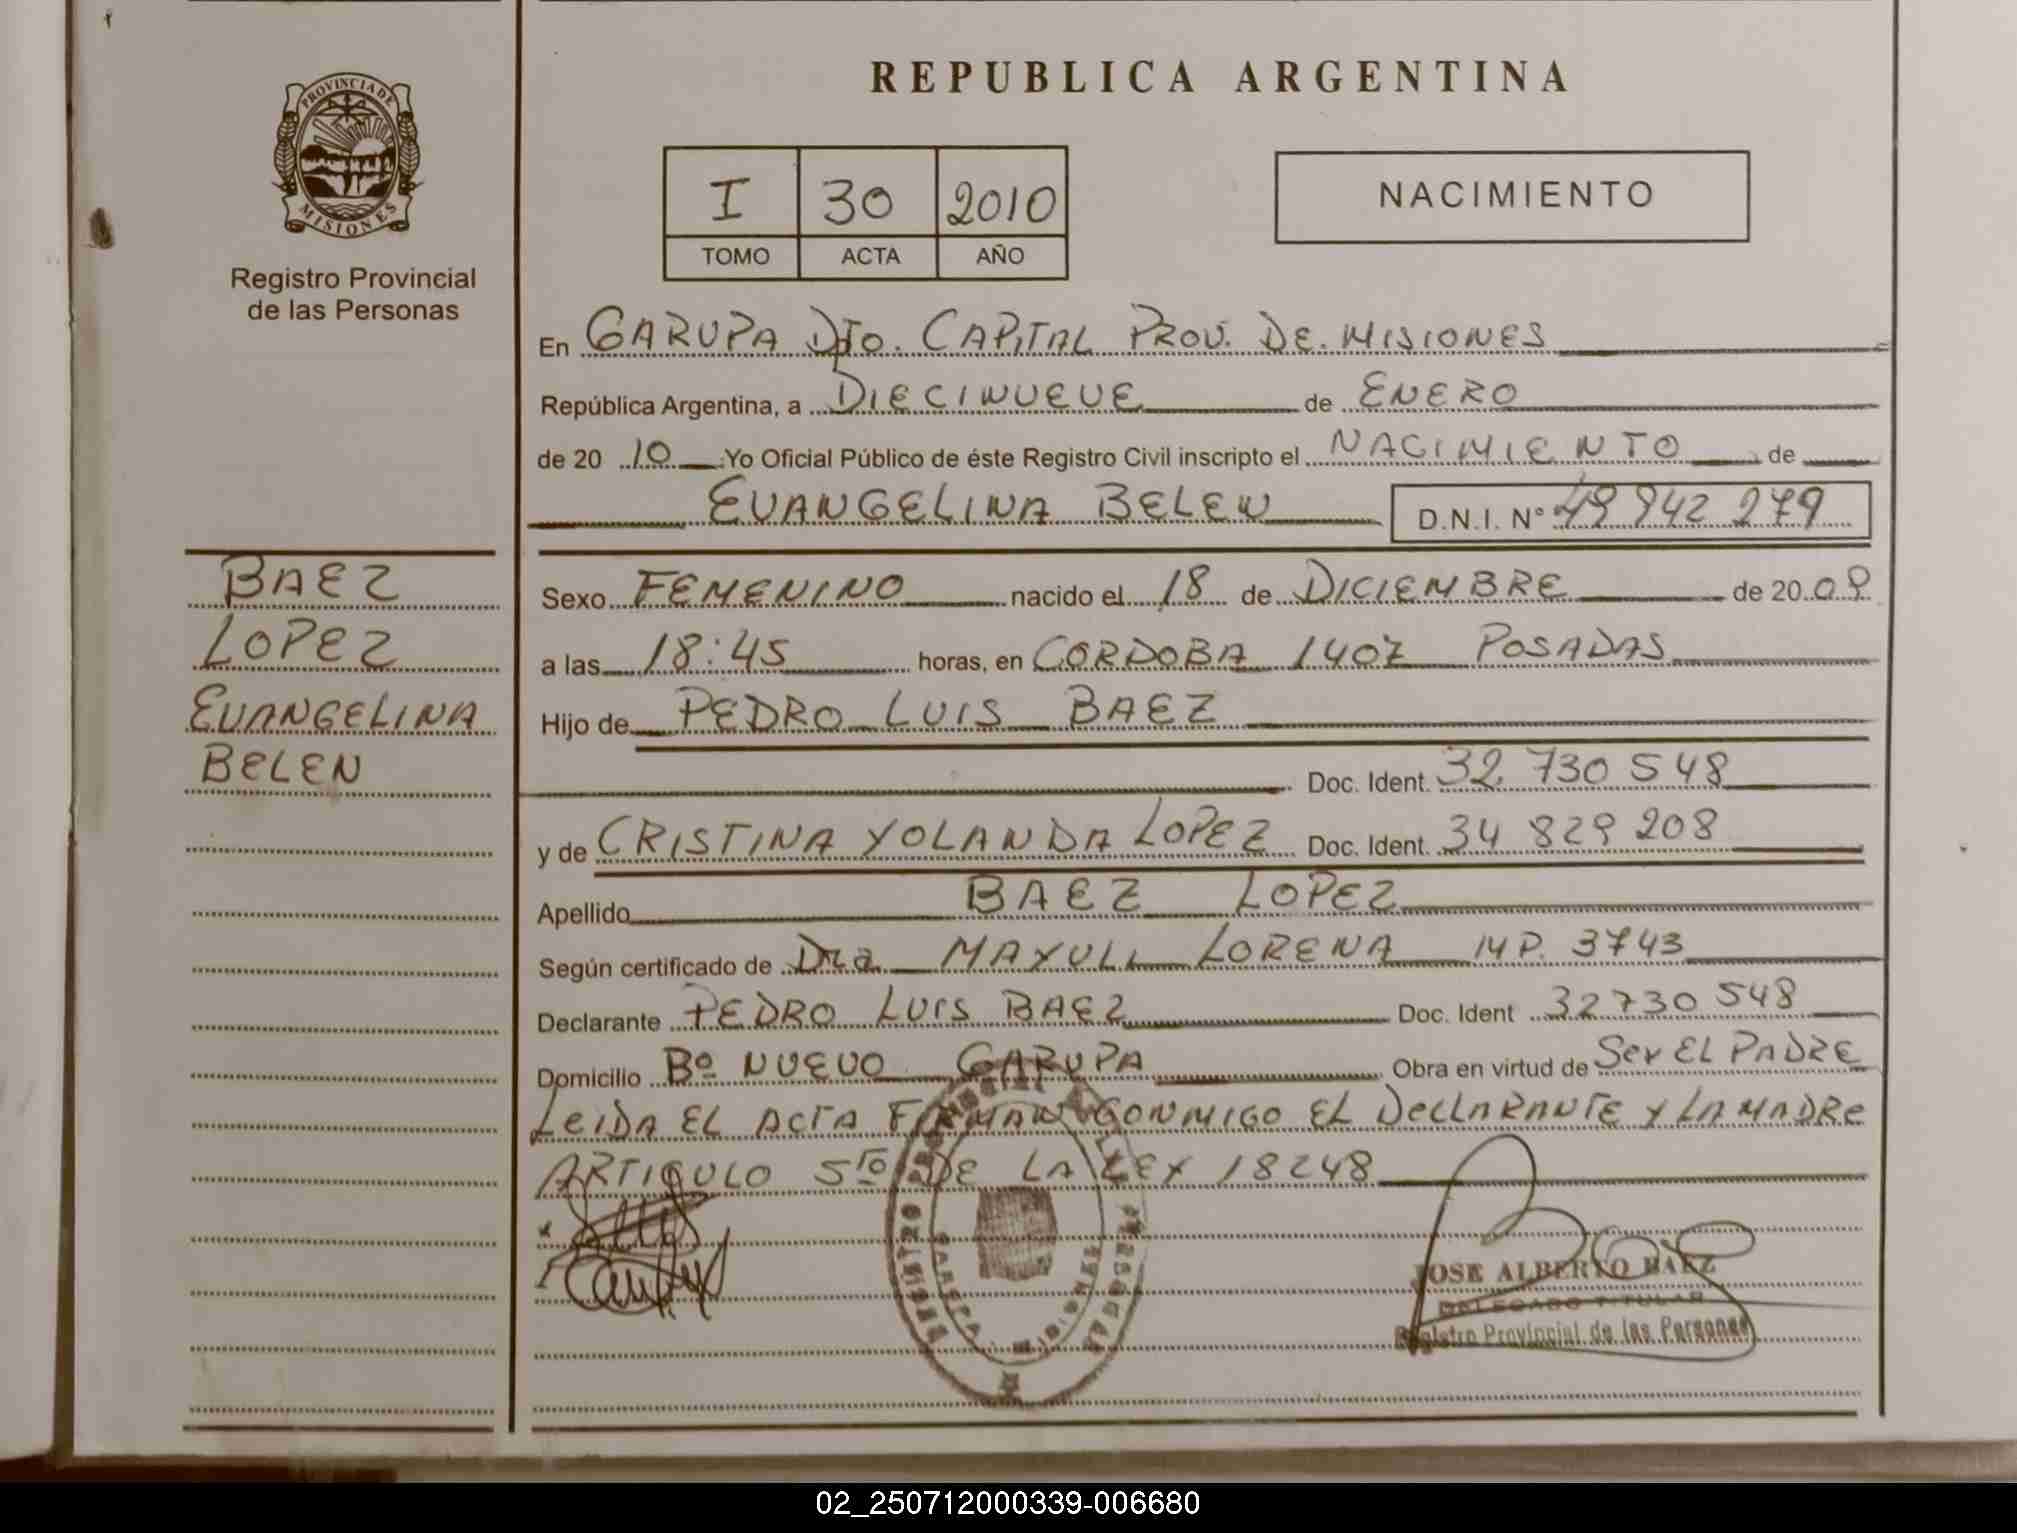 PROVINCIA DE
MISIONES
Registro Provincial
de las Personas
BAEZ
LOPEZ
EVANGELINA
BELEN
REPUBLICA ARGENTINA
I 30 2010
TOMO ACTA AÑO
NACIMIENTO
En GARUPA Dto. CAPITAL PROV. DE MISIONES
República Argentina, a DIECINUEVE de ENERO
de 20 10 Yo Oficial Público de éste Registro Civil inscripto el NACIMIENTO de
EVANGELINA BELEN D.N.I. N° 49 942 279
Sexo FEMENINO nacido el 18 de DICIEMBRE de 20 09
a las 18:45 horas, en CORDOBA 1407 POSADAS
Hijo de PEDRO LUIS BAEZ
Doc. Ident. 32 730 548
y de CRISTINA YOLANDA LOPEZ Doc. Ident. 34 829 208
Apellido BAEZ LOPEZ
Según certificado de Dra MAYULI LORENA MP. 3743
Declarante PEDRO LUIS BAEZ Doc. Ident 32730 548
Domicilio Bº NUEVO GARUPA Obra en virtud de Ser EL PADRE
LEIDA EL ACTA FIRMAN CONMIGO EL DECLARANTE Y LA MADRE
ARTICULO 5TO DE LA LEY 18248
JOSE ALBERTO BAEZ
DELEGADO TITULAR
Registro Provincial de las Personas
02_250712000339-006680